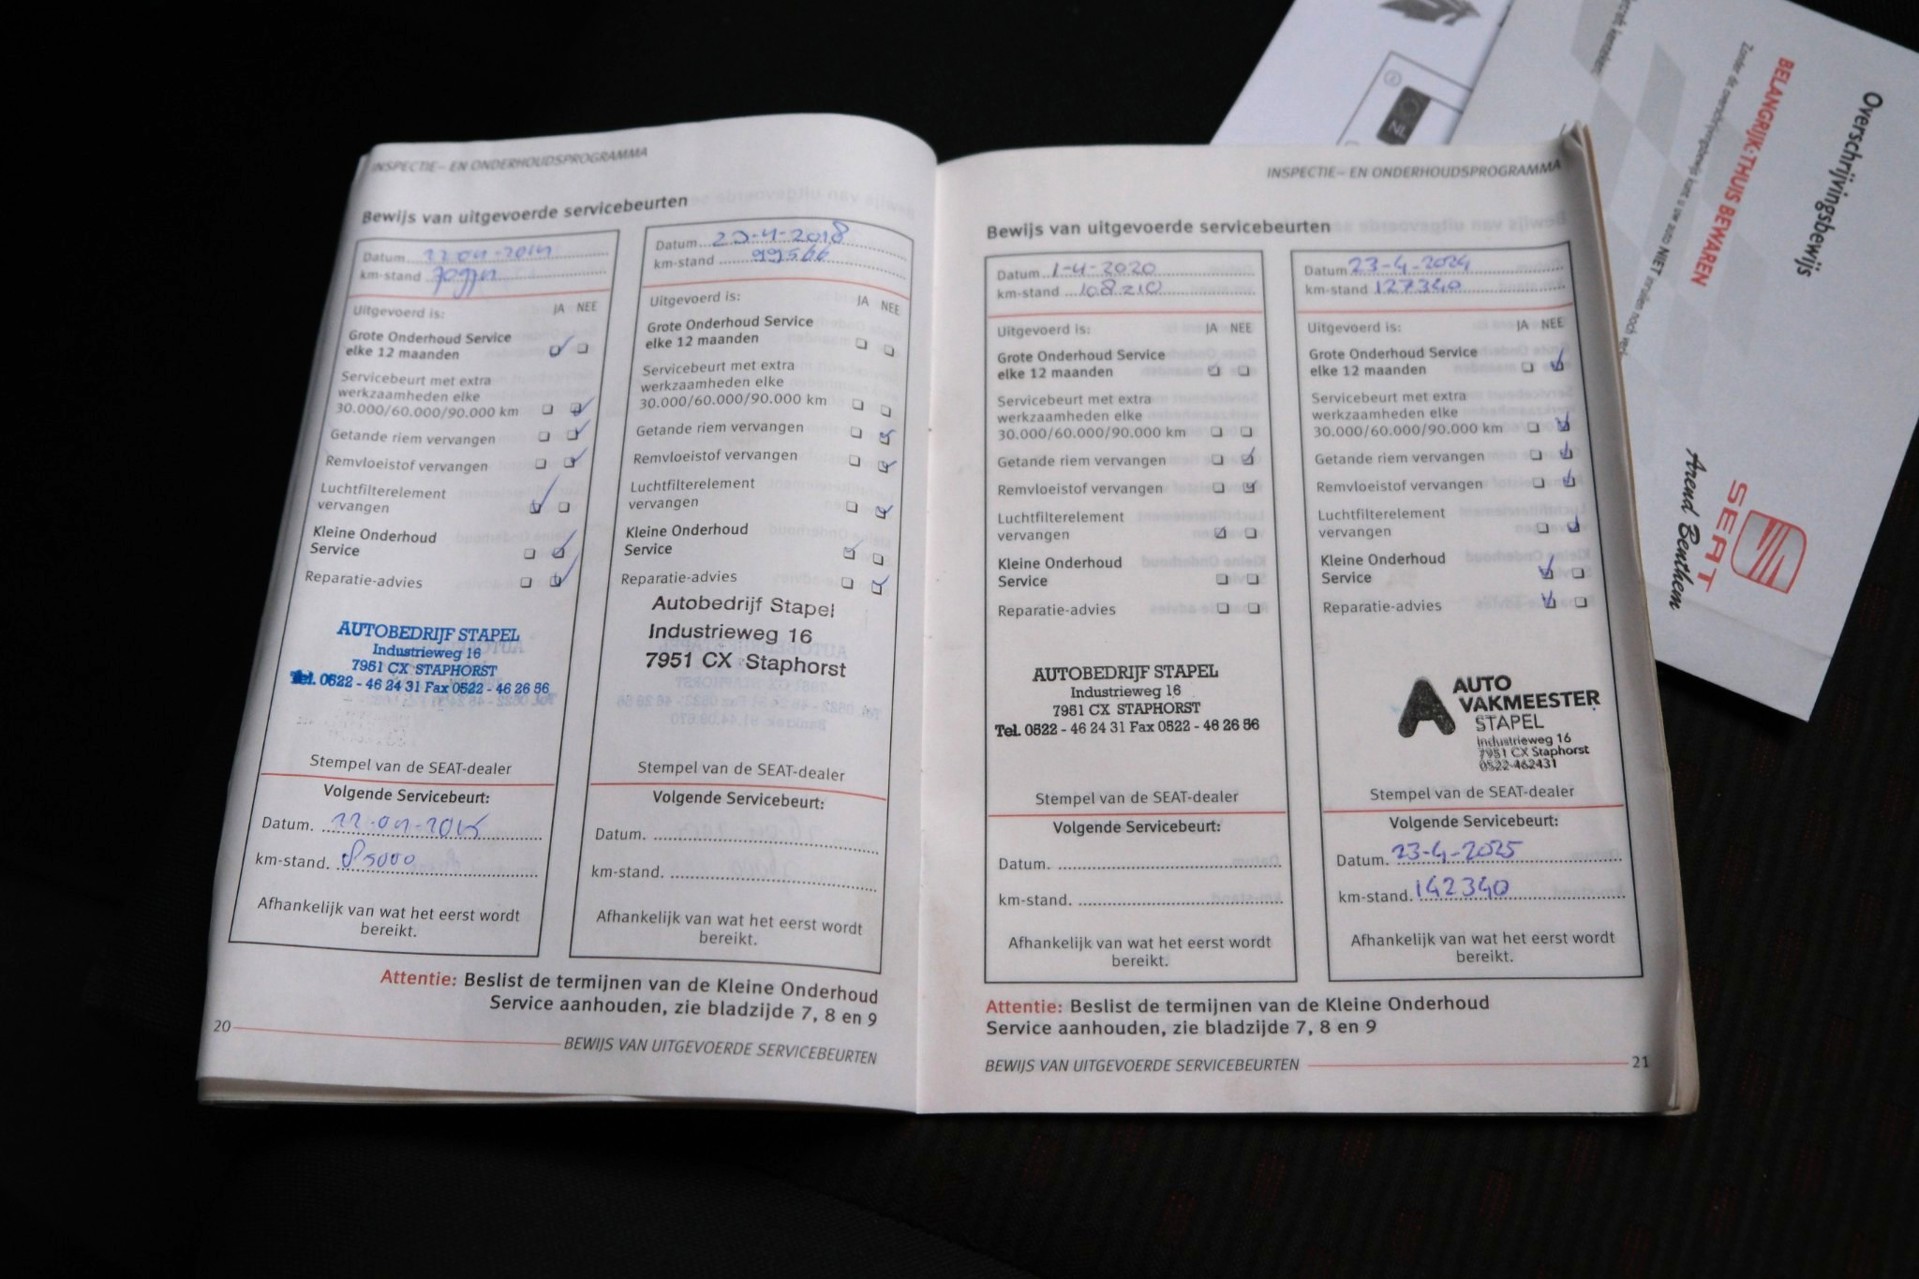 INSPECTIE- EN ONDERHOUDSPROGRAMMA
Bewijs van uitgevoerde servicebeurten
Datum
km-stand
Uitgevoerd is: JA NEE
Grote Onderhoud Service
elke 12 maanden
Servicebeurt met extra
werkzaamheden elke
30.000/60.000/90.000 km
Getande riem vervangen
Remvloeistof vervangen
Luchtfilterelement
vervangen
Kleine Onderhoud
Service
Reparatie-advies
AUTOBEDRIJF STAPEL
Industrieweg 16
7951 CX STAPHORST
Tel. 0522 - 46 24 31 Fax 0522 - 46 26 56
Stempel van de SEAT-dealer
Volgende Servicebeurt:
Datum.
km-stand. 85000
Afhankelijk van wat het eerst wordt
bereikt.
Datum 20-4-2018
km-stand 99566
Uitgevoerd is: JA NEE
Grote Onderhoud Service
elke 12 maanden
Servicebeurt met extra
werkzaamheden elke
30.000/60.000/90.000 km
Getande riem vervangen
Remvloeistof vervangen
Luchtfilterelement
vervangen
Kleine Onderhoud
Service
Reparatie-advies
Autobedrijf Stapel
Industrieweg 16
7951 CX Staphorst
Stempel van de SEAT-dealer
Volgende Servicebeurt:
Datum.
km-stand.
Afhankelijk van wat het eerst wordt
bereikt.
Attentie: Beslist de termijnen van de Kleine Onderhoud
Service aanhouden, zie bladzijde 7, 8 en 9
20
BEWIJS VAN UITGEVOERDE SERVICEBEURTEN
INSPECTIE- EN ONDERHOUDSPROGRAMMA
Bewijs van uitgevoerde servicebeurten
Datum 1-4-2020
km-stand 108210
Uitgevoerd is: JA NEE
Grote Onderhoud Service
elke 12 maanden
Servicebeurt met extra
werkzaamheden elke
30.000/60.000/90.000 km
Getande riem vervangen
Remvloeistof vervangen
Luchtfilterelement
vervangen
Kleine Onderhoud
Service
Reparatie-advies
AUTOBEDRIJF STAPEL
Industrieweg 16
7951 CX STAPHORST
Tel. 0522 - 46 24 31 Fax 0522 - 46 26 56
Stempel van de SEAT-dealer
Volgende Servicebeurt:
Datum.
km-stand.
Afhankelijk van wat het eerst wordt
bereikt.
Datum 23-4-2024
km-stand 127340
Uitgevoerd is: JA NEE
Grote Onderhoud Service
elke 12 maanden
Servicebeurt met extra
werkzaamheden elke
30.000/60.000/90.000 km
Getande riem vervangen
Remvloeistof vervangen
Luchtfilterelement
vervangen
Kleine Onderhoud
Service
Reparatie-advies
A AUTO
VAKMEESTER
STAPEL
Industrieweg 16
7951 CX Staphorst
0522-462431
Stempel van de SEAT-dealer
Volgende Servicebeurt:
Datum. 23-4-2025
km-stand. 142340
Afhankelijk van wat het eerst wordt
bereikt.
Attentie: Beslist de termijnen van de Kleine Onderhoud
Service aanhouden, zie bladzijde 7, 8 en 9
BEWIJS VAN UITGEVOERDE SERVICEBEURTEN
21
Overschrijvingsbewijs
BELANGRIJK-THUIS BEWAREN
Zonder dit overschrijvingsbewijs kunt u uw auto NIET inruilen noch
NL
SEAT
Arend Benthem